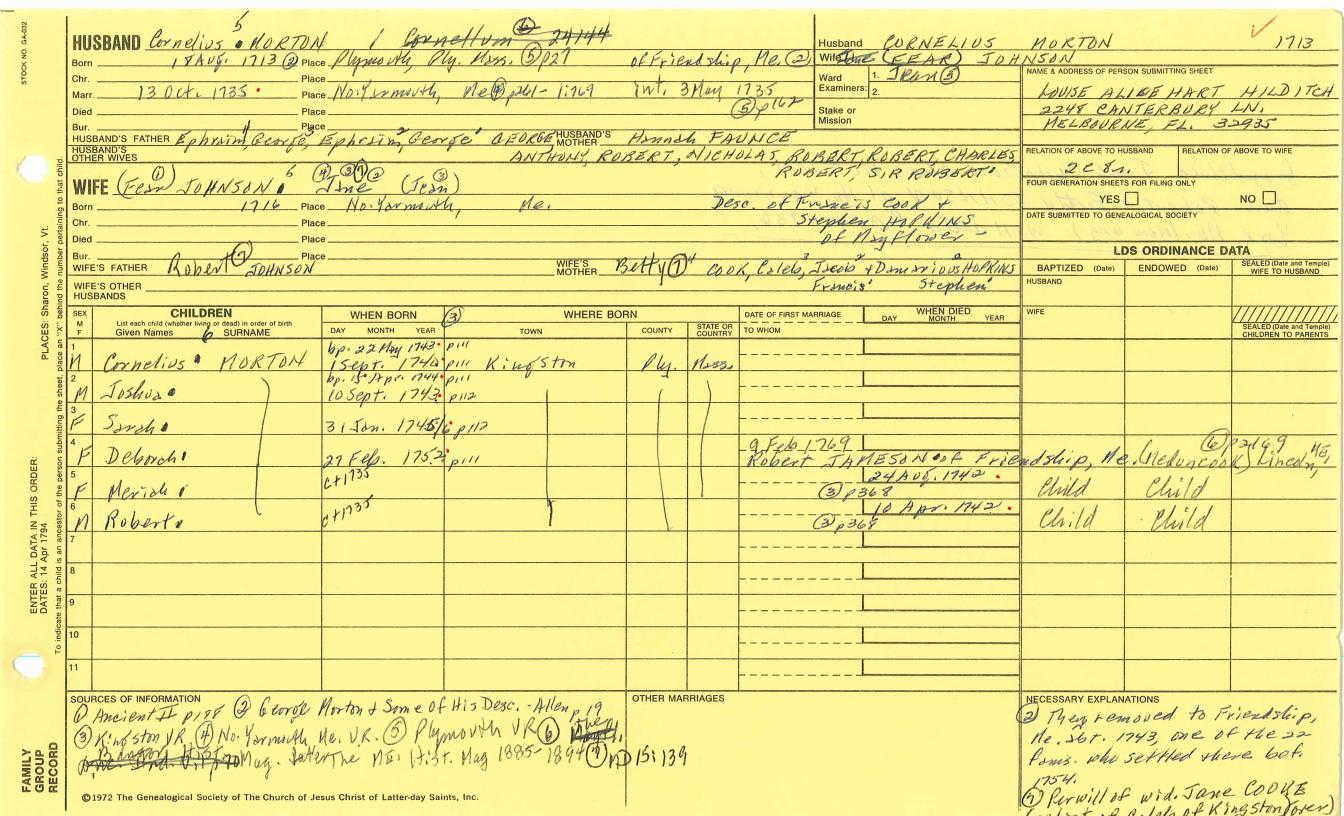 STOCK NO. GA-032
5
HUSBAND Cornelius MORTON / Cornellum ⑥ 24144
Born 18 Aug. 1713 ② Place Plymouth, Ply. Mass. ⑤ p27 of Friendship, Me. ②
Chr. Place
Marr. 13 Oct. 1735 Place No. Yarmouth, Me ④ p261- 1:769 Int. 3 May 1735
Died Place ⑤ p162
Bur. Place
HUSBAND'S FATHER Ephraim, George, Ephraim, George GEORGE HUSBAND'S MOTHER Hannah FAUNCE
HUSBAND'S OTHER WIVES ANTHONY, ROBERT, NICHOLAS, ROBERT, ROBERT, CHARLES
ROBERT, SIR ROBERT
Husband CORNELIUS MORTON 1713
Wife Jane (FEAR) JOHNSON
Ward Examiners: 1. Jean ③
2.
Stake or Mission
NAME & ADDRESS OF PERSON SUBMITTING SHEET
LOUISE ALIDE HART HILDITCH
2248 CANTERBURY LN.
MELBOURNE, FL. 32935
RELATION OF ABOVE TO HUSBAND RELATION OF ABOVE TO WIFE
2c8r.
FOUR GENERATION SHEETS FOR FILING ONLY
YES NO
DATE SUBMITTED TO GENEALOGICAL SOCIETY
WIFE (Fear) ① JOHNSON 6 ④ ③ ⑦ ② Jane (Jean) ③
Born 1716 Place No. Yarmouth, Me. Desc. of Francis COOK &
Chr. Place Stephen HOPKINS
Died Place of Mayflower -
Bur. Place
WIFE'S FATHER Robert ⑦ JOHNSON WIFE'S MOTHER Betty ⑦ 4 COOK, Caleb, 3 Jacob 2 + Damarious 2 HOPKINS
Francis 1 Stephen 1
WIFE'S OTHER HUSBANDS
LDS ORDINANCE DATA
BAPTIZED (Date) ENDOWED (Date) SEALED (Date and Temple) WIFE TO HUSBAND
HUSBAND
WIFE
SEALED (Date and Temple) CHILDREN TO PARENTS
SEX M F CHILDREN List each child (whether living or dead) in order of birth Given Names 6 SURNAME
WHEN BORN DAY MONTH YEAR ③ WHERE BORN TOWN COUNTY STATE OR COUNTRY
DATE OF FIRST MARRIAGE TO WHOM WHEN DIED DAY MONTH YEAR
1 bp. 22 May 1743 p111
M Cornelius MORTON 1 Sept. 1740 p111 Kingston Ply. Mass.
2 bp. 15 Apr. 1744 p111
M Joshua 10 Sept. 1743 p112
3
F Sarah 31 Jan. 1745/6 p112
4 9 Feb 1769 ⑥ p2169
F Deborah 27 Feb. 1752 p111 Robert JAMESON of Friendship, Me. (Meduncook) Lincoln, ME,
5 ct 1735 24 Aug. 1742
F Meriah ③ p368 Child Child
6 ct 1735 10 Apr. 1742
M Robert ③ p368 Child Child
7
8
9
10
11
SOURCES OF INFORMATION
① Ancient II p188 ② George Morton & Some of His Desc. - Allen p 19
③ Kingston VR. ④ No. Yarmouth Me. V.R. ⑤ Plymouth VR ⑥ The
Bangor Hist. Mag. later The Me. Hist. Mag 1885-1894 ⑦ MD 15:139
OTHER MARRIAGES
NECESSARY EXPLANATIONS
② They removed to Friendship,
Me. abt. 1743, one of the 22
fams. who settled there bef.
1754.
⑦ Per will of wid. Jane COOKE
(relict of Caleb of Kingston (over)
©1972 The Genealogical Society of The Church of Jesus Christ of Latter-day Saints, Inc.
FAMILY GROUP RECORD
ENTER ALL DATA IN THIS ORDER:
DATES: 14 Apr 1794
PLACES: Sharon, Windsor, Vt.
To indicate that a child is an ancestor of the person submitting the sheet, place an "X" behind the number pertaining to that child.